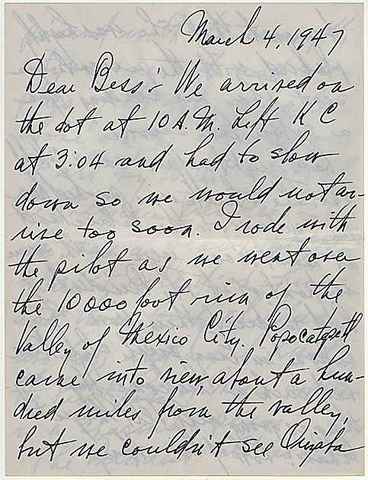 March 4, 1947
Dear Bess:- We arrived on
the dot at 10 A.M. Left K C
at 3:04 and had to slow
down so we would not ar-
rive too soon. I rode with
the pilot as we went over
the 10000 foot rim of the
Valley of Mexico City. Popocatepetl
came into view about a hun-
dred miles from the valley,
but we couldn't see Orizaba